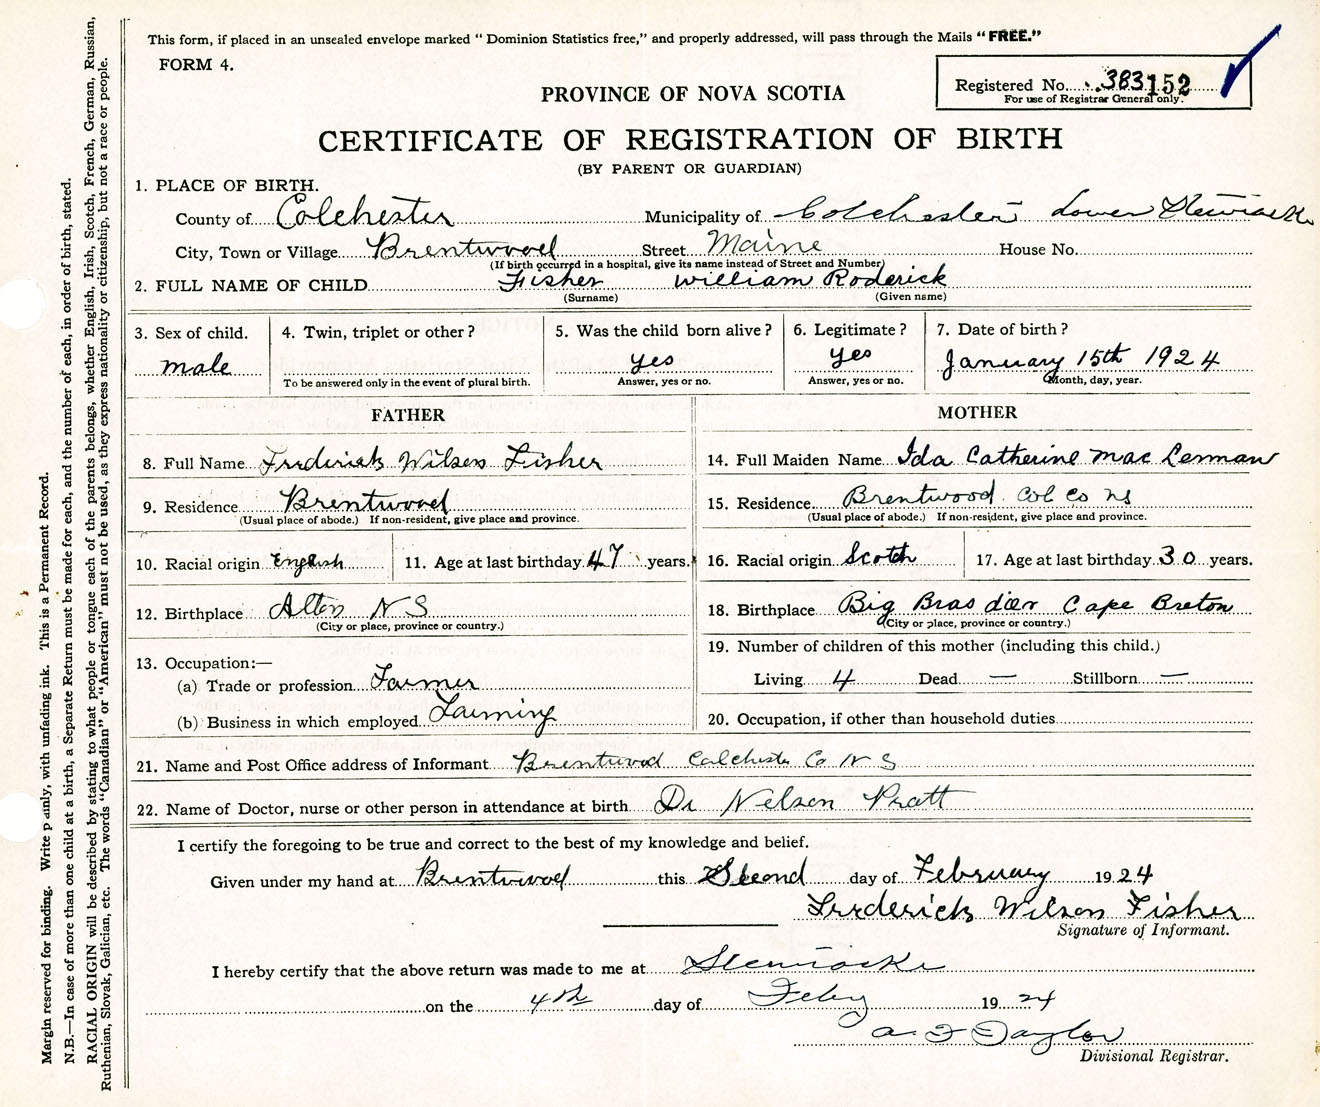 This form, if placed in an unsealed envelope marked “ Dominion Statistics free,” and properly addressed, will pass through the Mails “FREE.”
FORM 4.
Registered No. 383152
For use of Registrar General only.
PROVINCE OF NOVA SCOTIA
CERTIFICATE OF REGISTRATION OF BIRTH
(BY PARENT OR GUARDIAN)
1. PLACE OF BIRTH.
County of Colchester Municipality of Colchester Lower Stewiacke
City, Town or Village Brentwood Street Maine House No.
(If birth occurred in a hospital, give its name instead of Street and Number)
2. FULL NAME OF CHILD Fisher William Roderick
(Surname) (Given name)
3. Sex of child. 4. Twin, triplet or other? 5. Was the child born alive? 6. Legitimate? 7. Date of birth?
male yes yes January 15th 1924
To be answered only in the event of plural birth. Answer, yes or no. Answer, yes or no. Month, day, year.
FATHER
8. Full Name Frederick Wilson Fisher
9. Residence Brentwood
(Usual place of abode.) If non-resident, give place and province.
10. Racial origin English 11. Age at last birthday 47 years.
12. Birthplace Alton N S
(City or place, province or country.)
13. Occupation:—
(a) Trade or profession Farmer
(b) Business in which employed Farming
MOTHER
14. Full Maiden Name Ida Catherine Mac Lennan
15. Residence Brentwood Col Co ns
(Usual place of abode.) If non-resident, give place and province.
16. Racial origin Scotch 17. Age at last birthday 30 years.
18. Birthplace Big Bras dior Cape Breton
(City or place, province or country.)
19. Number of children of this mother (including this child.)
Living 4 Dead — Stillborn —
20. Occupation, if other than household duties
21. Name and Post Office address of Informant Brentwood Colchester Co N S
22. Name of Doctor, nurse or other person in attendance at birth Dr Nelson Pratt
I certify the foregoing to be true and correct to the best of my knowledge and belief.
Given under my hand at Brentwood this Second day of February 1924
Frederick Wilson Fisher
Signature of Informant.
I hereby certify that the above return was made to me at Stewiacke
on the 4th day of Feby 1924
A. F Taylor
Divisional Registrar.
Margin reserved for binding. Write plainly, with unfading ink. This is a Permanent Record.
N.B.—In case of more than one child at a birth, a Separate Return must be made for each, and the number of each, in order of birth, stated.
RACIAL ORIGIN will be described by stating to what people or tongue each of the parents belongs, whether English, Irish, Scotch, French, German, Russian,
Ruthenian, Slovak, Galician, etc. The words “Canadian” or “American” must not be used, as they express nationality or citizenship, but not a race or people.